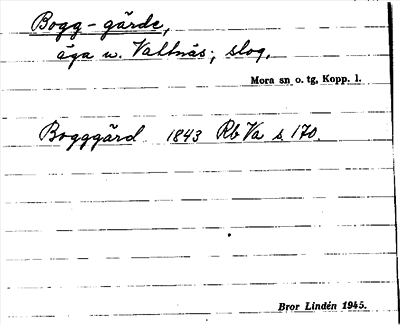 Bogg-gärde,
äga u. Valtnäs; slog.
Mora sn o. tg, Kopp. l.
Bogggärd 1843 Rb Va s. 170.
Bror Lindén 1945.